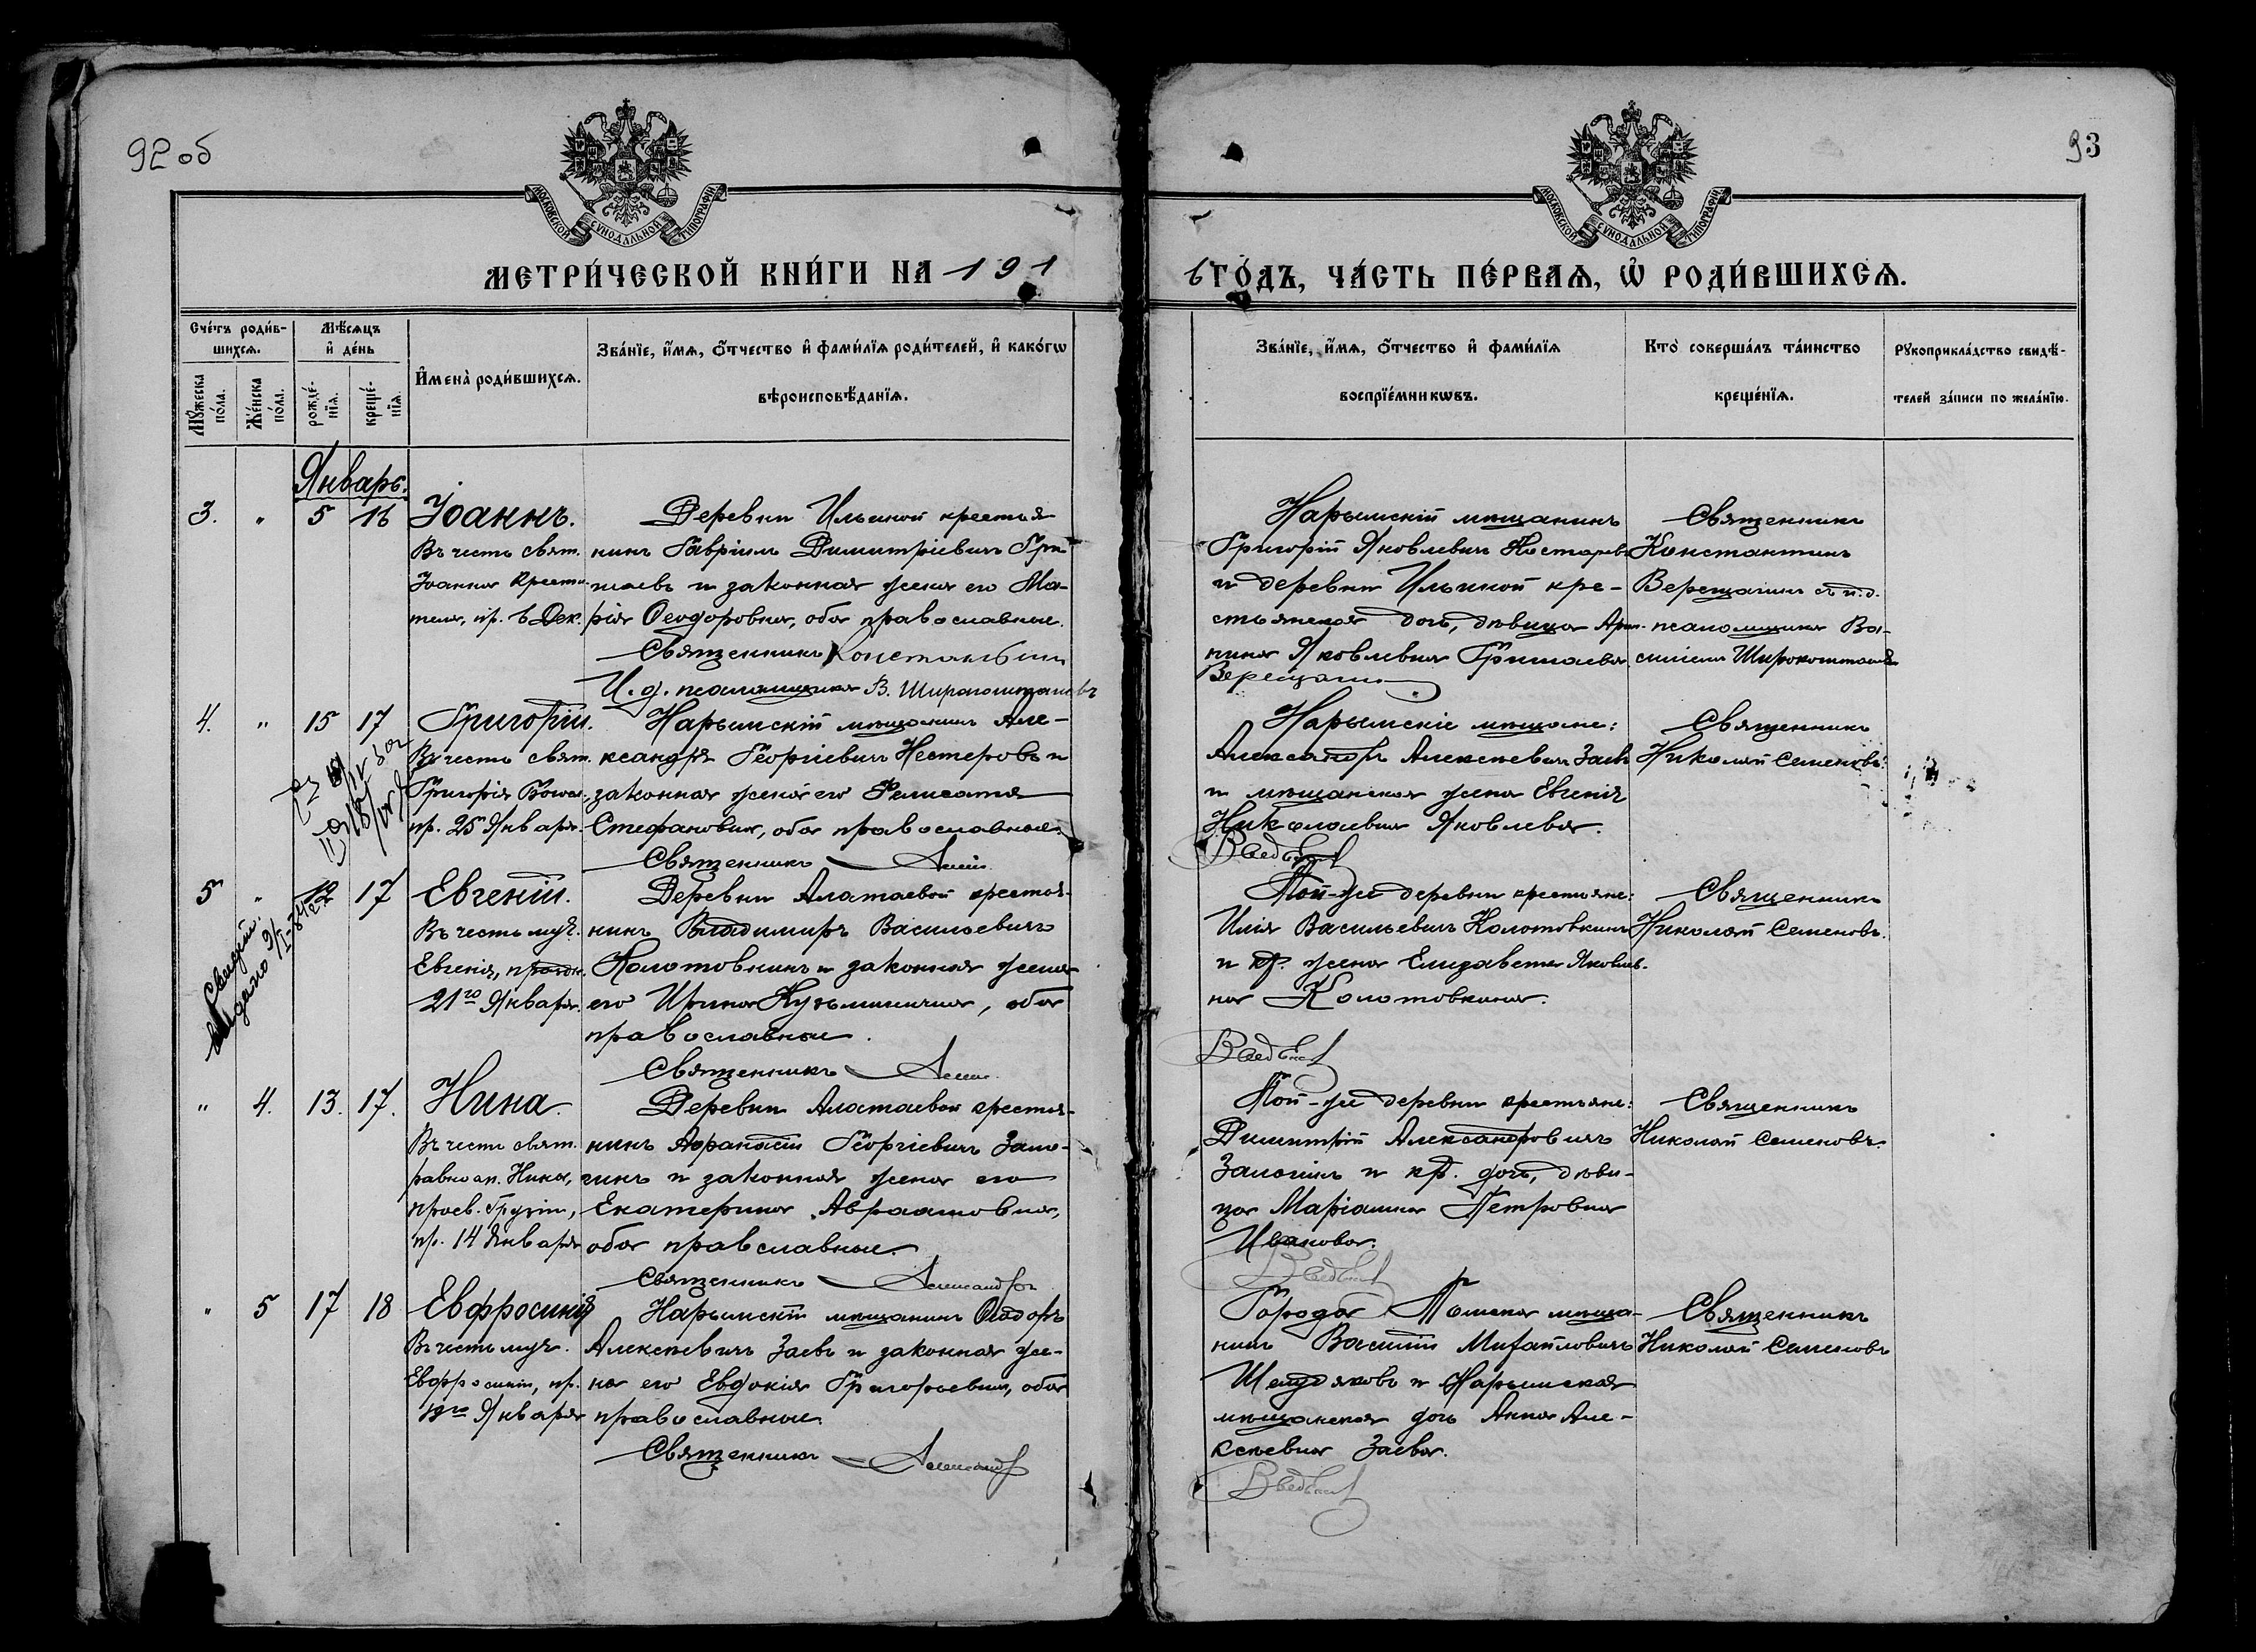 92 об
93
МОСКОВСКОЙ СѴНОДАЛЬНОЙ ТИПОГРАФІИ
МОСКОВСКОЙ СѴНОДАЛЬНОЙ ТИПОГРАФІИ
МЕТРИ́ЧЕСКОЙ КНИ́ГИ НА 191
6 ГО́ДЪ, ЧА́СТЬ ПЕ́РВАѦ, Ѡ РОДИ́ВШИХСѦ.
Сче́тъ роди́в-
шихсѧ.
Мꙋ́жеска
по́ла.
Же́нска
по́ла.
Мѣ́сѧцъ
и҆ де́нь
рожде́-
нїѧ.
креще́-
нїѧ.
И҆мена̀ роди́вшихсѧ.
Зва́нїе, и҆́мѧ, ѻ҆́тчество и҆ фами́лїѧ роди́телей, и҆ како́гѡ
вѣроисповѣ́данїѧ.
Зва́нїе, и҆́мѧ, ѻ҆́тчество и҆ фами́лїѧ
воспрїе́мникѡвъ.
Кто̀ соверша́лъ та́инство
креще́нїѧ.
Рꙋкоприкла́дство свидѣ́-
телей за́писи по жела́нїю.
Январь.
3. " 5 16
Іоаннъ.
Въ честь свят.
Іоанна Крести-
теля, пр. 6 Дек.
Деревни Ильиной крестья
нинъ Гавріилъ Димитріевичъ Гри
шаевъ и законная жена его Ма-
рія Ѳеодоровна, оба православные.
Священникъ Константинъ
И. д. псаломщика В. Широкоштановъ
Нарымскій мѣщанинъ
Григорій Яковлевичъ
и деревни Ильиной кре-
стьянская дочь, дѣвица
нина Яковлевна Гришаева.
Верещагинъ
Священникъ
Константинъ
Верещагинъ съ и.д.
псаломщика Ва-
силіемъ
4. " 15 17
Григорій.
Въ честь свят.
Григорія Богос.,
пр. 25 Января.
Нарымскій мѣщанинъ Але-
ксандръ Георгіевичъ Нестеровъ и
законная жена его Фелисата
Стефановна, оба православные.
Священникъ
Нарымскіе мѣщане:
Александръ Алексѣевичъ Заевъ
и мѣщанская жена Евгенія
Николаевна Яковлева.
Священникъ
Николай Семеновъ.
5 " 12 17
Евгеній.
Въ честь муч.
Евгенія, праздн.
21го Января.
Деревни Алатаевой крестья-
нинъ Владимиръ Васильевичъ
Колотовкинъ и законная жена
его Ирина Кузьминична, оба
православные.
Священникъ
Той-же деревни крестьяне:
Илія Васильевичъ Колотовкинъ
и кр. жена Елизавета Яковлев-
на Колотовкина.
Священникъ
Николай Семеновъ.
" 4. 13. 17.
Нина.
Въ честь свят.
равноап. Нины,
просв. Грузіи,
пр. 14 Января
Деревни Алатаевой крестья-
нинъ Аѳанасій Георгіевичъ Зало-
гинъ и законная жена его
Екатерина Авраамовна,
оба правславные.
Священникъ
Той-же деревни крестьяне:
Димитрій Александровичъ
Залогинъ и кр. дочь, дѣви-
ца Маріамна Петровна
Иванова.
Священникъ
Николай Семеновъ.
" 5 17 18
Евфросинія
Въ честь муч.
Евфросиніи, пр.
Января
Нарымскій мѣщанинъ Ѳеодоръ
Алексѣевичъ Заевъ и законная же-
на его Евдокія Григорьевна, оба
православные.
Священникъ
Города Томска мѣща-
нинъ Василій Михайловичъ
и Нарымская
мѣщанская дочь Анна Але-
ксѣевна Заева.
Священникъ
Николай Семеновъ